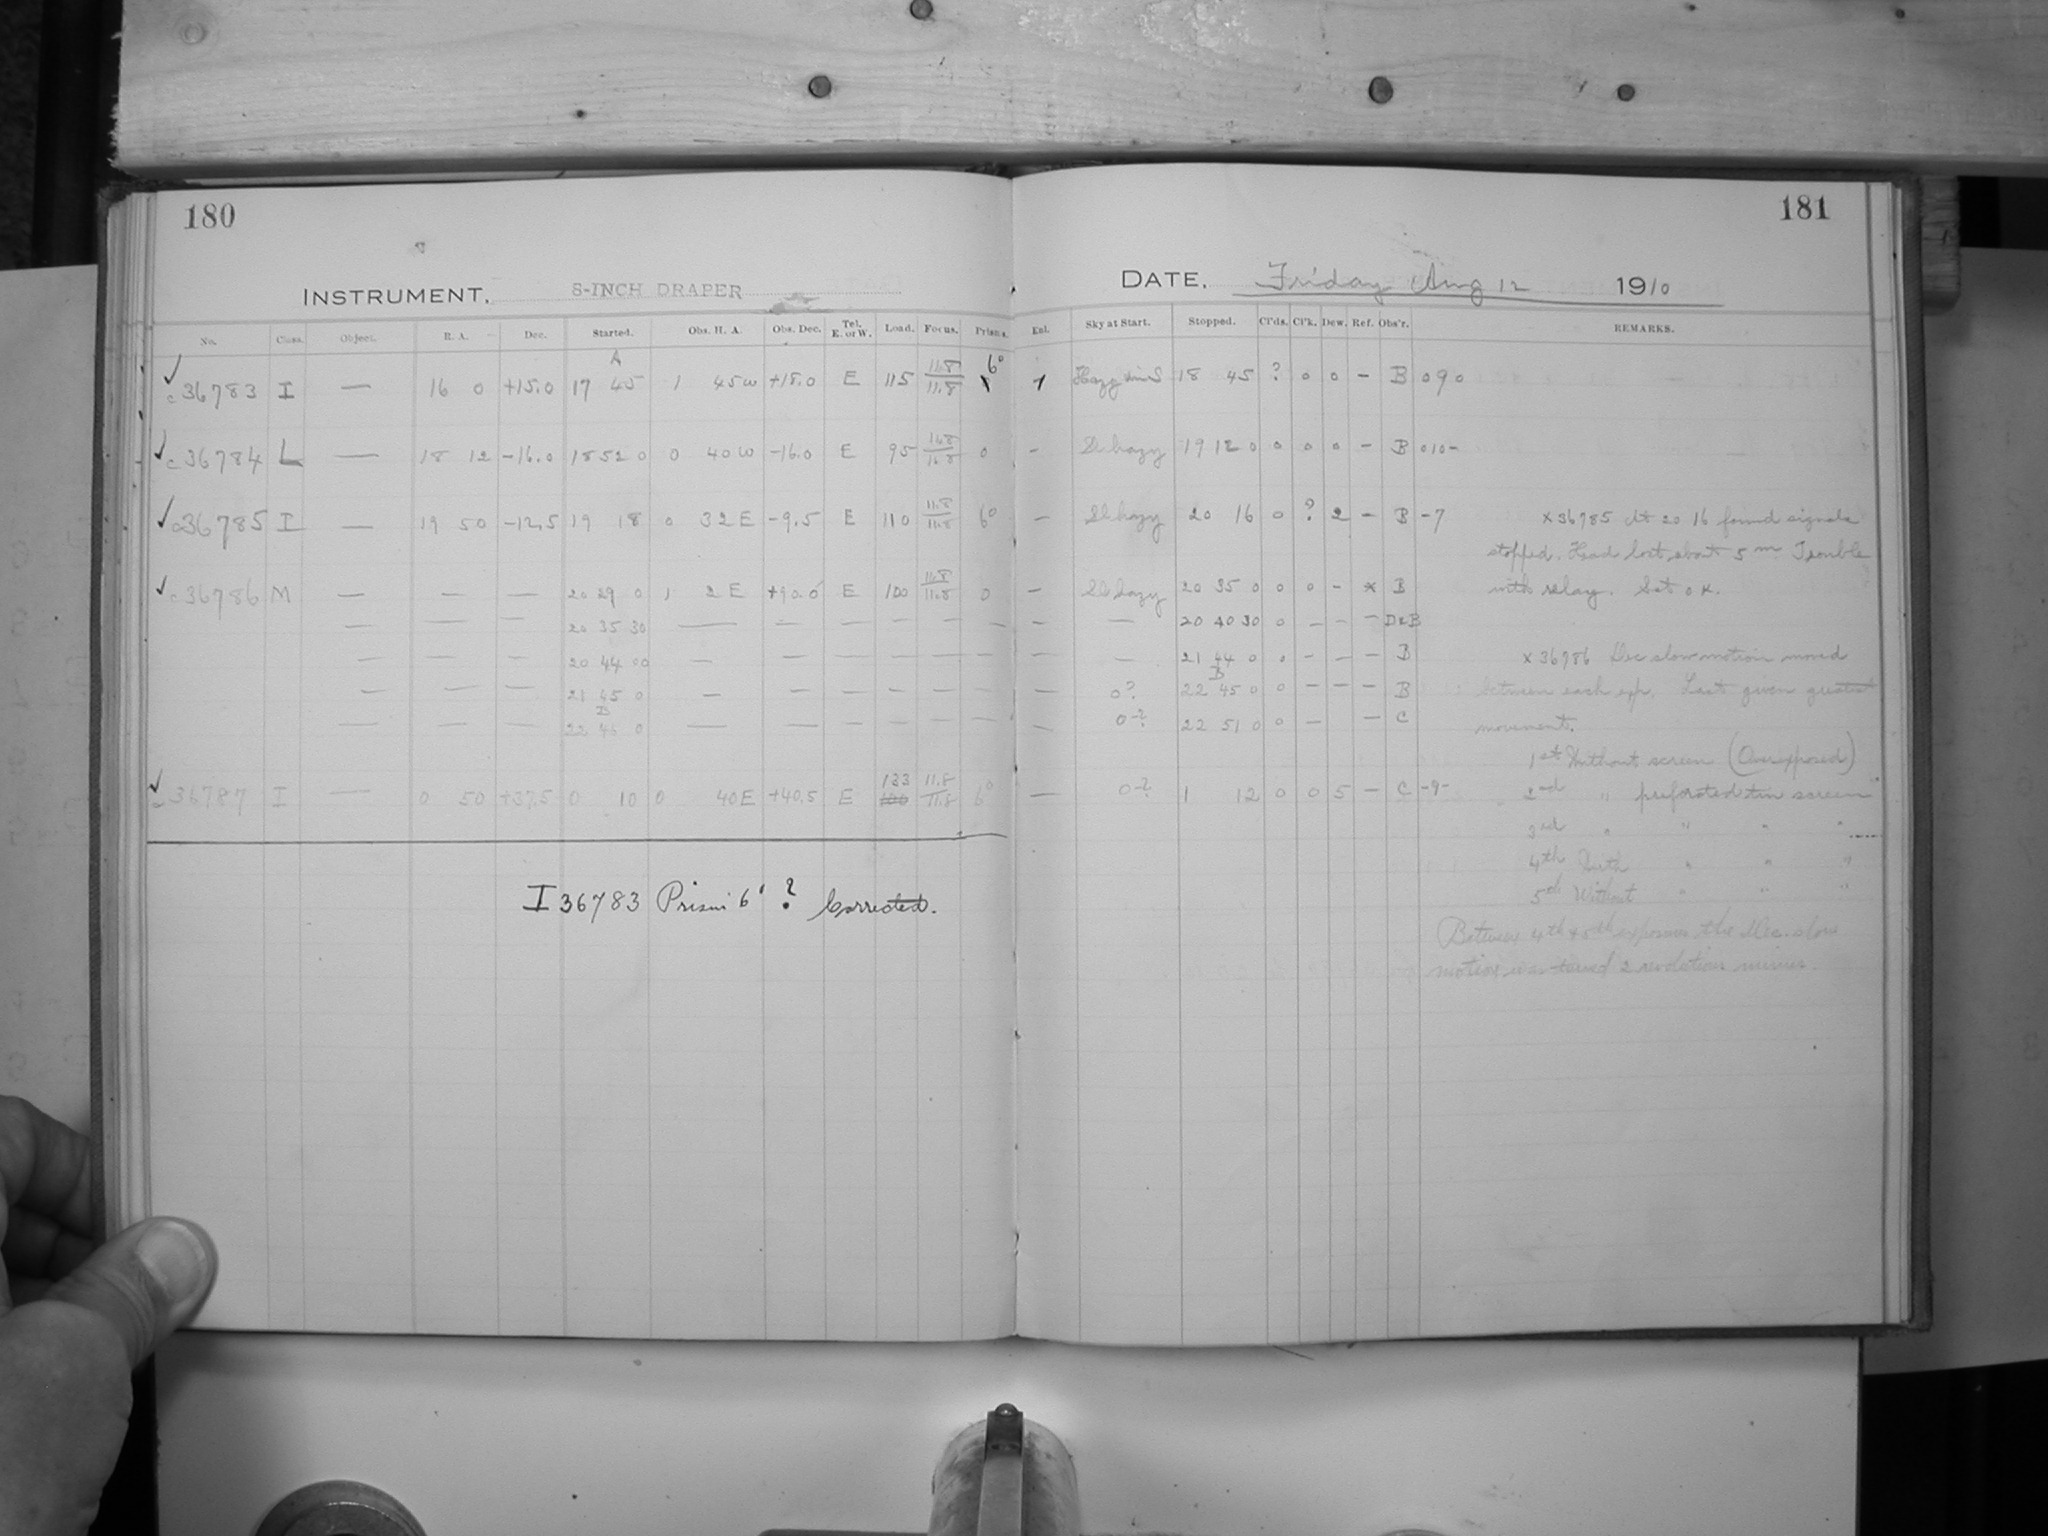 180
181
INSTRUMENT, 8-INCH DRAPER
DATE, Friday Aug 12 1910
No. Class. Object. R. A. Dec. Started. Obs. H. A. Obs. Dec. Tel. E. or W. Load. Focus. Prisms.
Enl. Sky at Start. Stopped. Cl'ds. Cl'k. Dew. Ref. Obs'r. REMARKS.
A
c 36783 I — 16 0 +15.0 17 45 1 45 W +15.0 E 115 11.8 / 11.8 6°
18 45 ? 0 0 - B 090
c 36784 L — 18 12 -16.0 18 52 0 0 40 W -16.0 E 95 0
- Sl hazy 19 12 0 0 0 0 - B 010-
c36785 I — 19 50 -12.5 19 18 0 32 E -9.5 E 110 11.8 / 11.8 6°
- Sl hazy 20 16 0 ? 2 - B -7
x 36785 At 20 16 found signals
stopped. Head lost about 5 m Trouble
c36786 M — — — 20 29 0 1 2 E +90.0 E 100 11.8 / 11.8 0
- Sl hazy 20 35 0 0 0 - * B
with relay. Set o K.
— — — 20 35 30 — — — — — —
— — 20 40 30 0 - - - D&B
— — — 20 44 00 — — — — — —
— 21 44 0 0 - - - B
x 36786 Dec slow motion moved
— — — 21 45 0 — — — — — —
— 0? 22 45 0 0 - - - B
between each exp. Last given greatest
— — — 22 46 0 — — — — — —
— 0-? 22 51 0 0 - - C
movement.
1st Without screen (Overexposed)
c 36787 I — 0 50 +37.5 0 10 0 40 E +40.5 E 133 11.8 / 11.8 6°
— 0-? 1 12 0 0 5 - C -9-
2nd " preforated tin screen
3rd " " " "
4th With " " "
5th Without " " "
I 36783 Prism 6° ? Corrected.
Between 4th & 5th exposures the Dec. slow
motion was turned 2 revolutions minus.